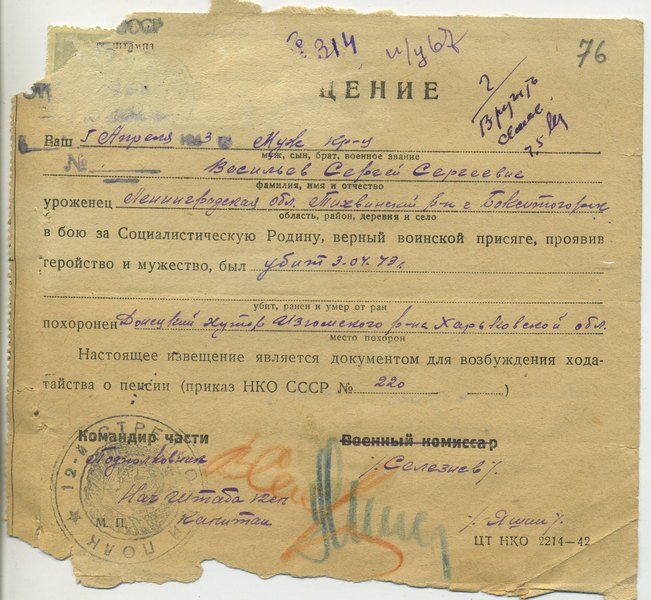 СССР
штампа
№ 314 п/у67
76
ЩЕНИЕ
2/
Вручить
семье
Ваш 5 Апреля 3 Муж кр-ц
муж, сын, брат, военное звание
№ Васильев Сергей Сергеевич
фамилия, имя и отчество
уроженец Ленинградская обл. Тихвинский р-н г Бокситогорск
область, район, деревня и село
в бою за Социалистическую Родину, верный воинской присяге, проявив
геройство и мужество, был убит 3.04.43г.
убит, ранен и умер от ран
похоронен Донецкий хутор Изюмского р-на Харьковской обл.
место похорон
Настоящее извещение является документом для возбуждения хода-
тайства о пенсии (приказ НКО СССР № 220 )
Командир части Военный комиссар
Подполковник /Селезнев/.
Нач штаба
М. П. капитан /Яшин/.
12-й СТРЕ ПОЛК
ЦТ НКО 2214—42